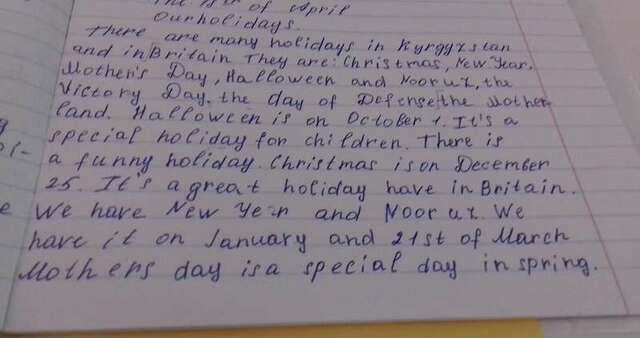 The 18th of April
Our holidays.
There are many holidays in Kyrgyzstan
and in Britain They are: Christmas, New Year,
Mother's Day, Halloween and Nooruz, the
Victory Day, the day of Defense the Mother
land. Halloween is on October 1. It's a
special holiday for children. There is
a funny holiday. Christmas is on December
25. It's a great holiday have in Britain.
We have New Year and Nooruz. We
have it on January and 21st of March
Mothers day is a special day in spring.